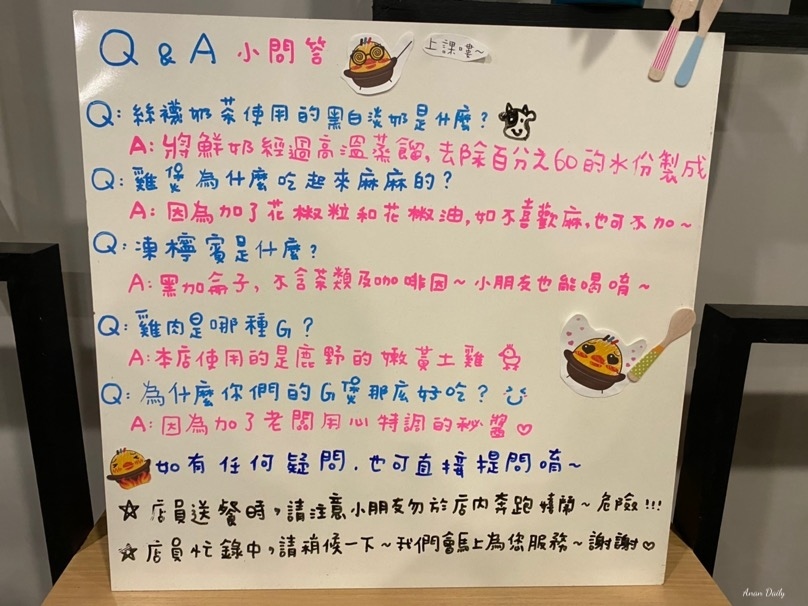 Q & A 小問答
上課嘍~
Q: 絲襪奶茶使用的黑白淡奶是什麼?
A: 將鮮奶經過高溫蒸餾,去除百分之60的水份製成
Q: 雞煲為什麼吃起來麻麻的?
A: 因為加了花椒粒和花椒油,如不喜歡麻,也可不加~
Q: 凍檸賓是什麼?
A: 黑加侖子,不含茶類及咖啡因~小朋友也能喝唷~
Q: 雞肉是哪種G?
A: 本店使用的是鹿野的嫩黃土雞
Q: 為什麼你們的G煲那麼好吃?
A: 因為加了老闆用心特調的秘醬♡
如有任何疑問.也可直接提問唷~
☆ 店員送餐時,請注意小朋友勿於店內奔跑嬉鬧~危險!!!
☆ 店員忙錄中,請稍候一下~我們會馬上為您服務~謝謝♡
Anan Daily